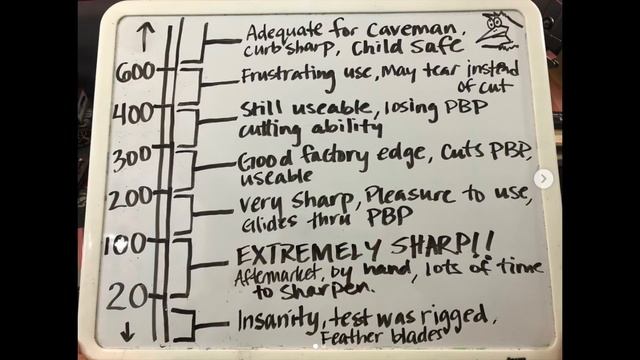 Adequate for Caveman,
curb sharp, Child Safe
600
Frustrating use, May tear instead
of cut
400
Still useable, losing PBP
cutting ability
300
Good factory edge, Cuts PBP,
useable
200
very sharp, Pleasure to use,
Glides thru PBP
100
EXTREMELY SHARP!!
Aftermarket, by hand, lots of time
to sharpen.
20
Insanity, test was rigged,
Feather blades